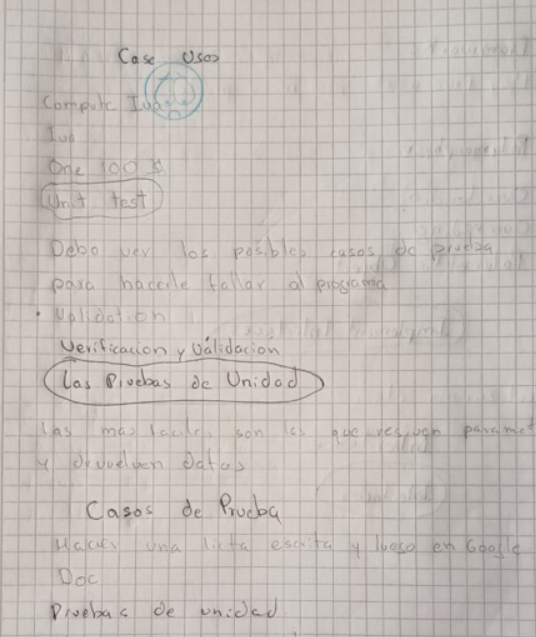 Case Usos
Compute Iva
Iva
One 100 $
Unit test
Debo ver los posibles casos de prueba
para hacerle fallar al programa
• Validation
Verificacion y Validación
Las Pruebas de Unidad
Las mas faciles son las que reciven paramet
y devuelven datos
Casos de Prueba
Hacer una lista escrita y luego en Google
Doc
Pruebas de unidad